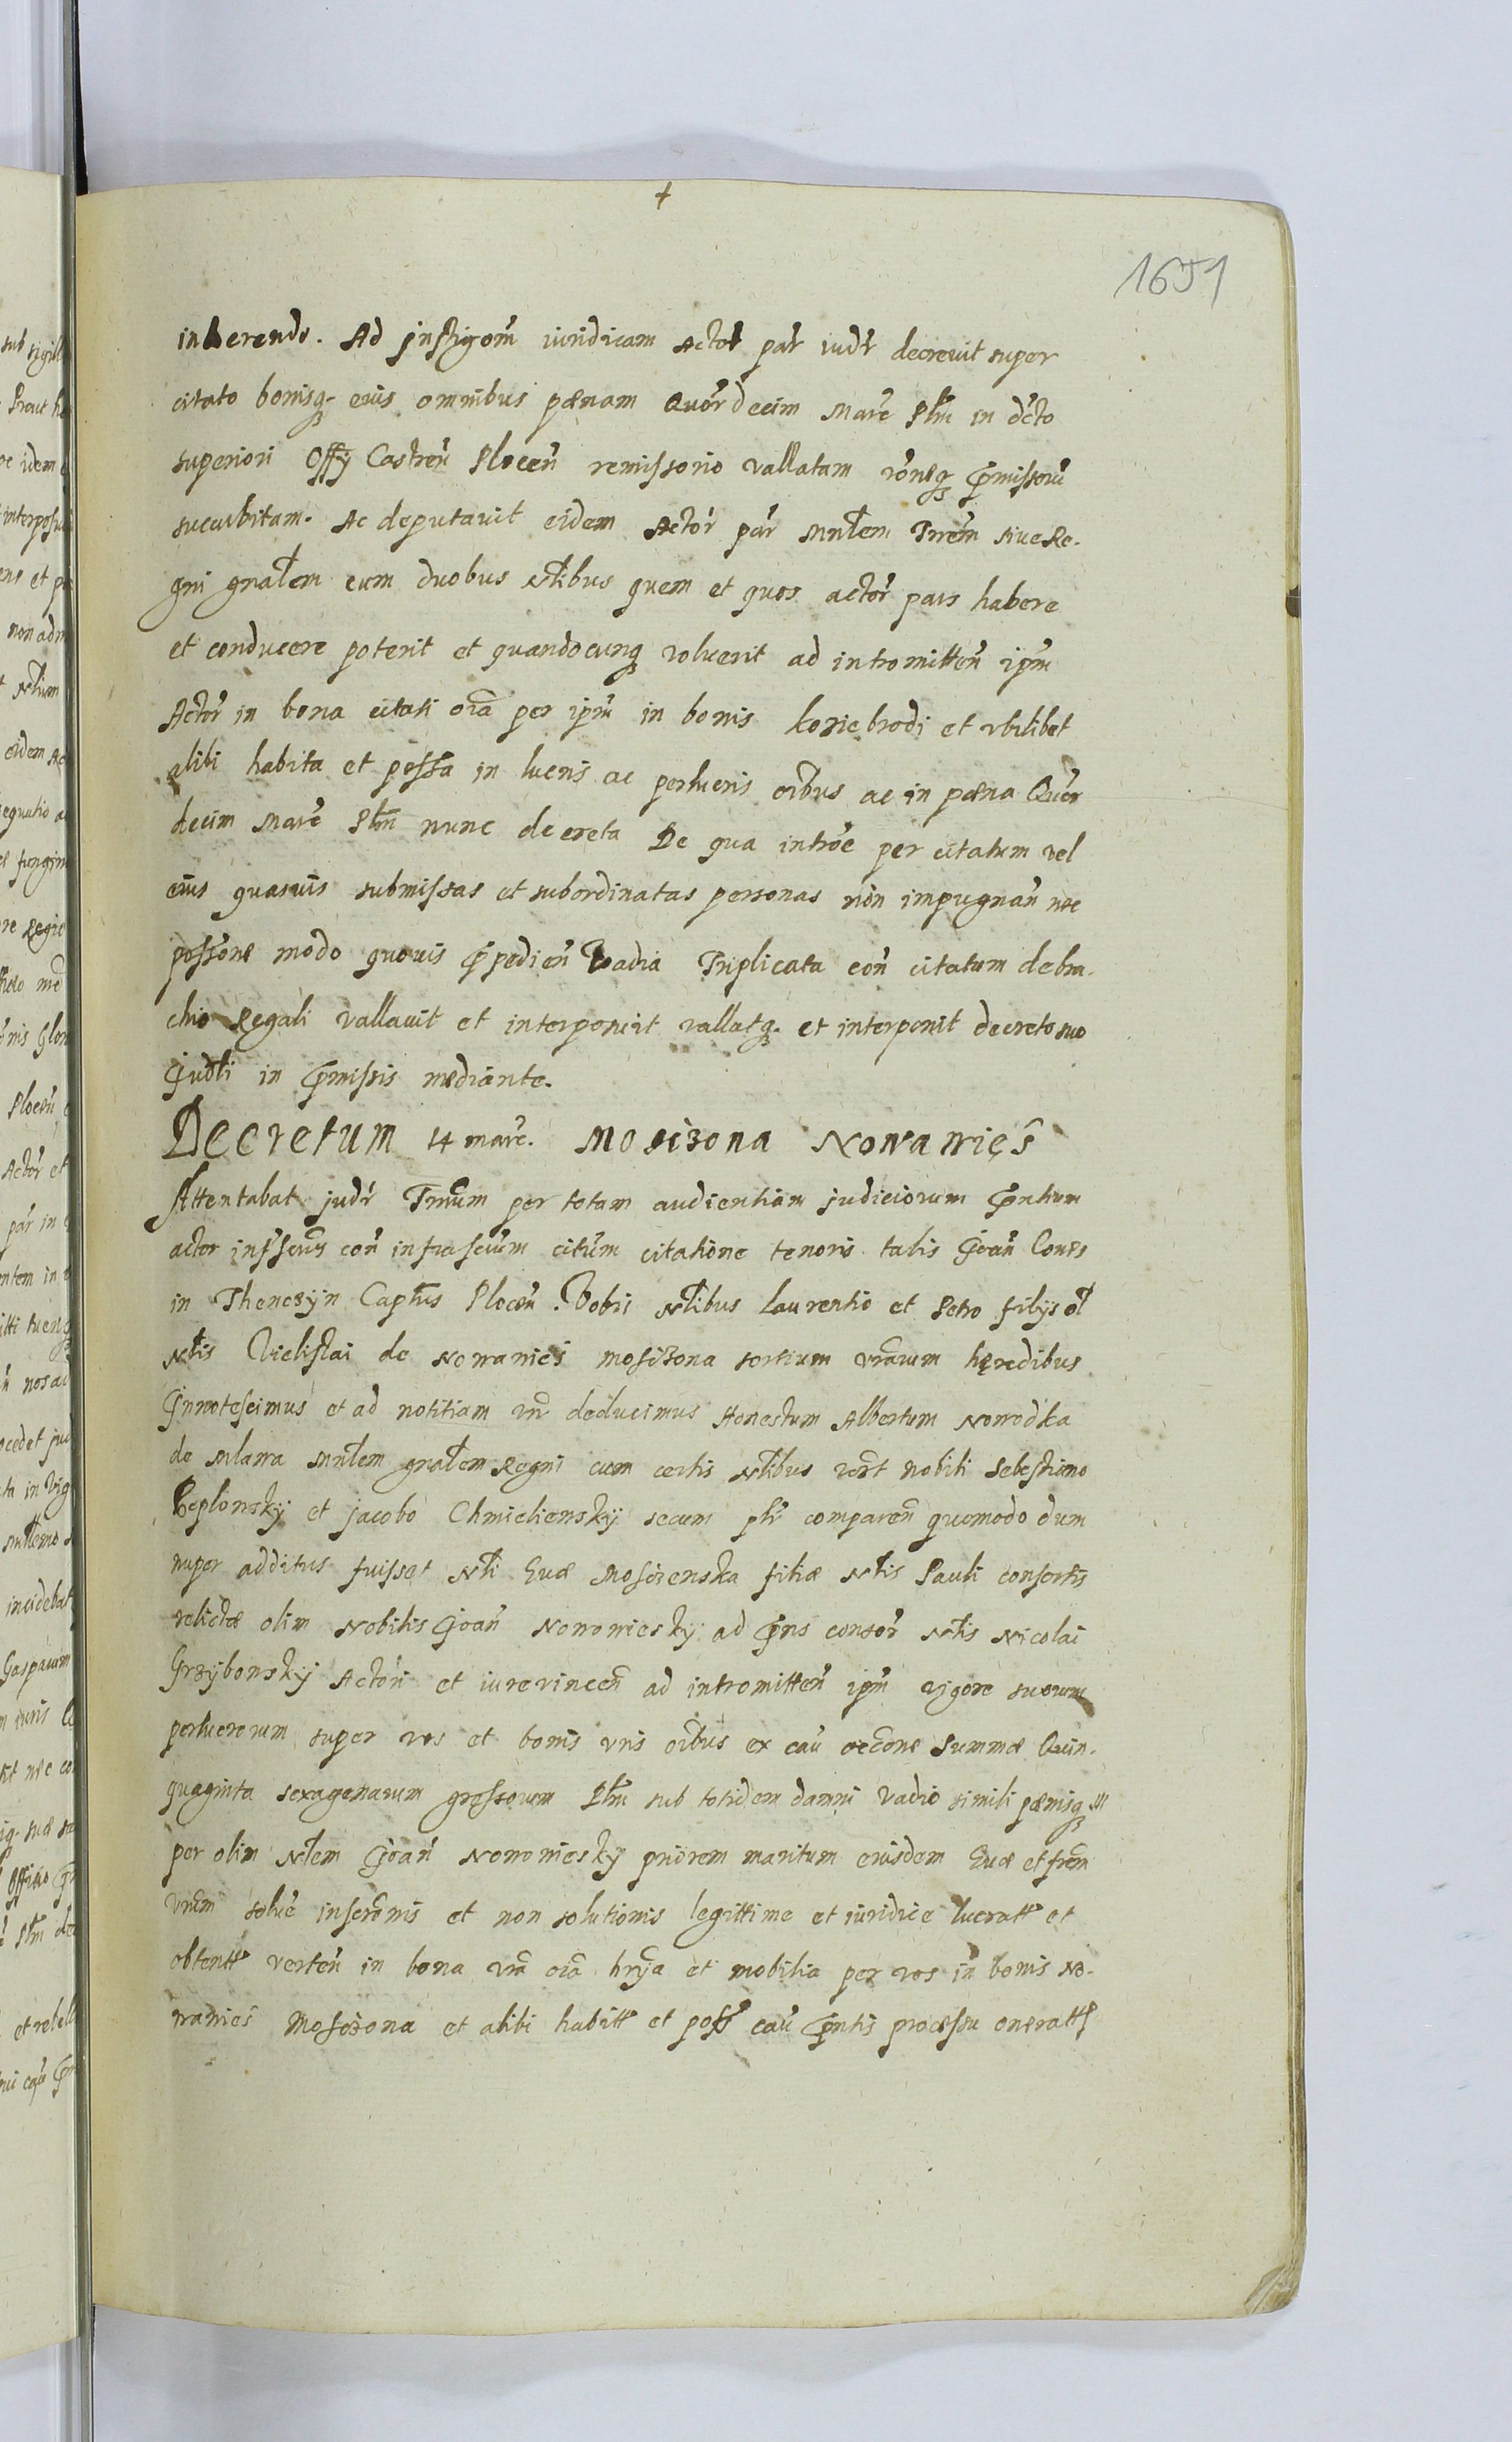 +
1651
inherendo. Ad instigoem iuridicam Actor par iudr decrevit super
citato bonisq eius omnibus pœnam Quordecim Marc Plm in dcto
superiori Offy Castren Plocen remissorio vallatam roneq pmissoru
sucubitam. Ac deputavit eidem Actor par Mnlem Trrem sive Re-
gni gnalem cum duobus Nlibus quem et quos actor pars habere
et conducere poterit et quandocunq voluerit ad intromitten ipm
Actor in bona citati oia per ipm in bonis koziebrodi et ubilibet
alibi habita et possa in lucris ac perlucris oibus ac in pœna Quor
decim Marc Plm nunc decreta De qua introe per citatum vel
eius quasvis submissas et subordinatas personas non impugnan nec
possone modo quovis ppedien Vadia Triplicata con citatum de bra-
chio Regali vallavit et interposuit vallatq. et interponit decreto suo
Judli in pmissis mediante.
Decretum 14 marc. Moscizona Nowawieś
Attentabat judr Trnum per totam audientiam judiciorum pntium
actor infscrus con infrascrum citum citatione tenoris talis Joan Comes
in Thenczyn Captus Plocen. Vobis Nlibus Laurentio et Petro filys ol
Nlis Vielislai de Nowawies moscizona sortium vrarum hęredibus
Innotescimus et ad notitiam vr deducimus Honestum Albertum Nowodka
de Mlawa Mnlem gnalem Regni cum certis Nlibus vert nobili Sebestiano
Peplonsky et Jacobo Chmielienskÿ secum plr comparen quomodo dum
nuper additus fuisset Nli Evæ Moscienska filiæ Nlis Pauli consortis
relictæ olim Nobilis Joan Nowowiesky ad pns consor Nlis Nicolai
Grzÿbowskÿ Actori et iurevincen ad intromitten ipm vigore suorum
perlucrorum super vos et bonis vris oibus ex cau occone Summæ Quin-
quaginta sexagenarum grossorum Plm sub totidem damni vadio simili pœnisq III
per olim Nlem Joan Nowowiesky priorem maritum eiusdem Evæ et frem
vrum solvē inscronis et non solutionis legittime et iuridice lucratt et
obtentt verten in bona vra oia hrya et mobilia per vos in bonis No-
wawies Moscizona et alibi habitt et poss cau pntis processu oneratt